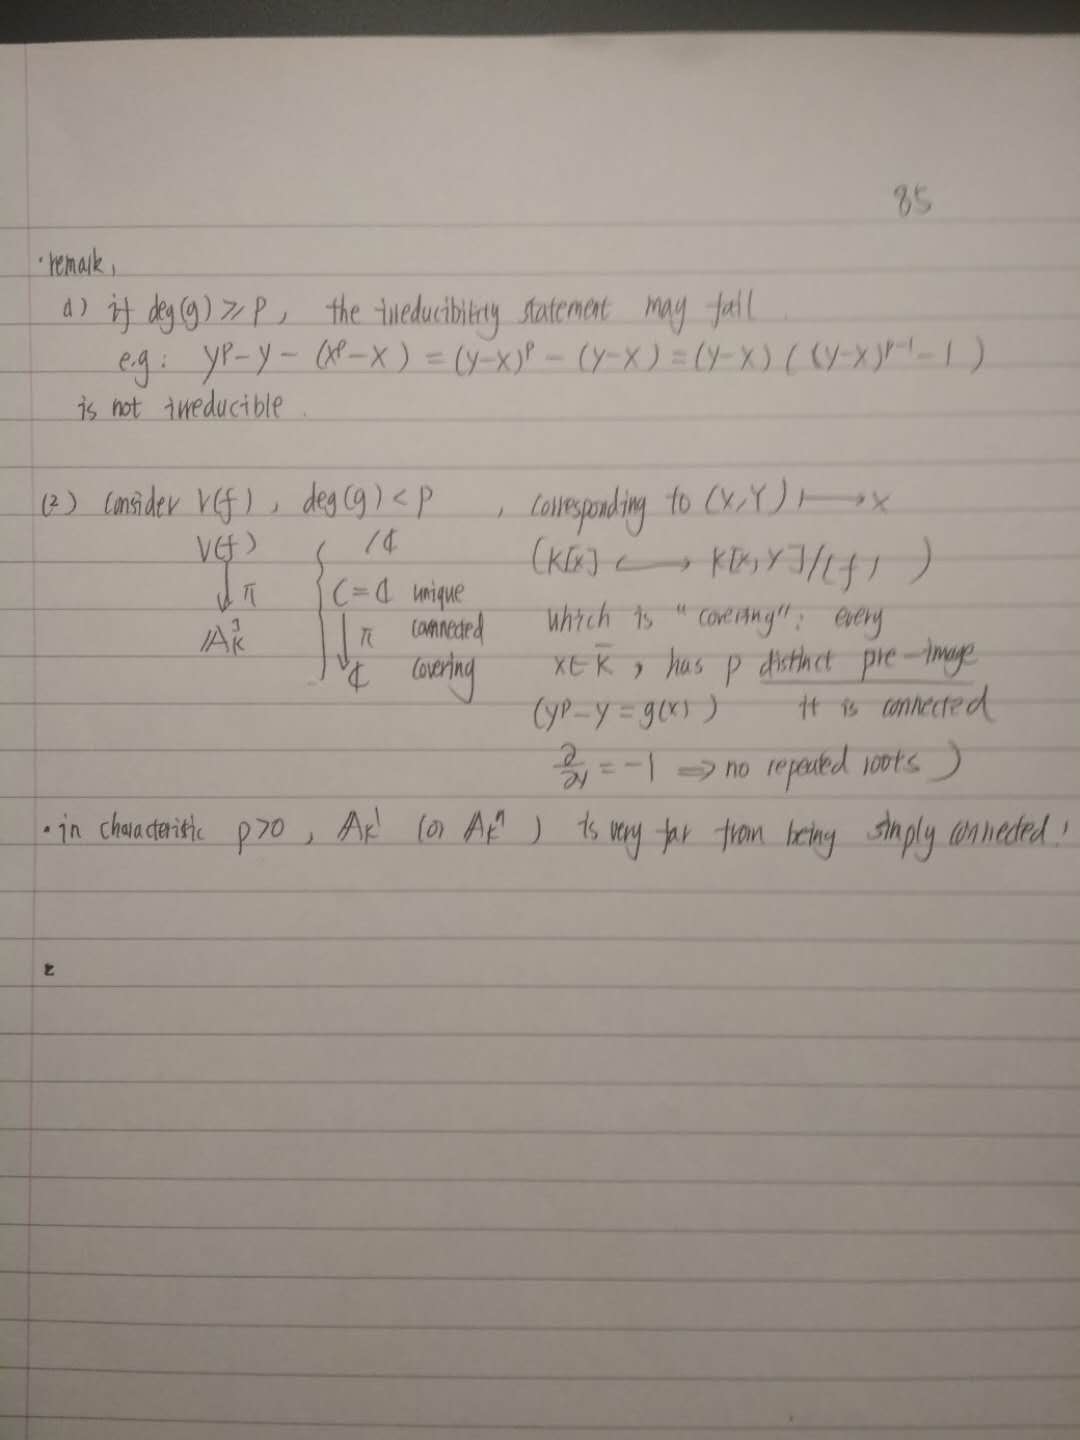 85
· remark,
a) if deg(g) ≥ p, the irreducibility statement may fail.
e.g: y^p - y - (x^p - x) = (y-x)^p - (y-x) = (y-x)((y-x)^{p-1} - 1)
is not irreducible.
(2) Consider V(f), deg(g) < p, corresponding to (x,y) ⟼ x
V(f) /ℂ (k[x] ⟶ k[x,y]/(f))
↓ π ℂ = ℂ unique which is "covering": every
𝔸_k^1 ↓ π connected x ∈ k̄, has p distinct pre-image
ℂ covering (y^p - y = g(x)) it is connected
∂/∂y = -1 ⟹ no repeated roots)
· in characteristic p>0, 𝔸_k^1 (or 𝔸_k^n) is very far from being simply connected!